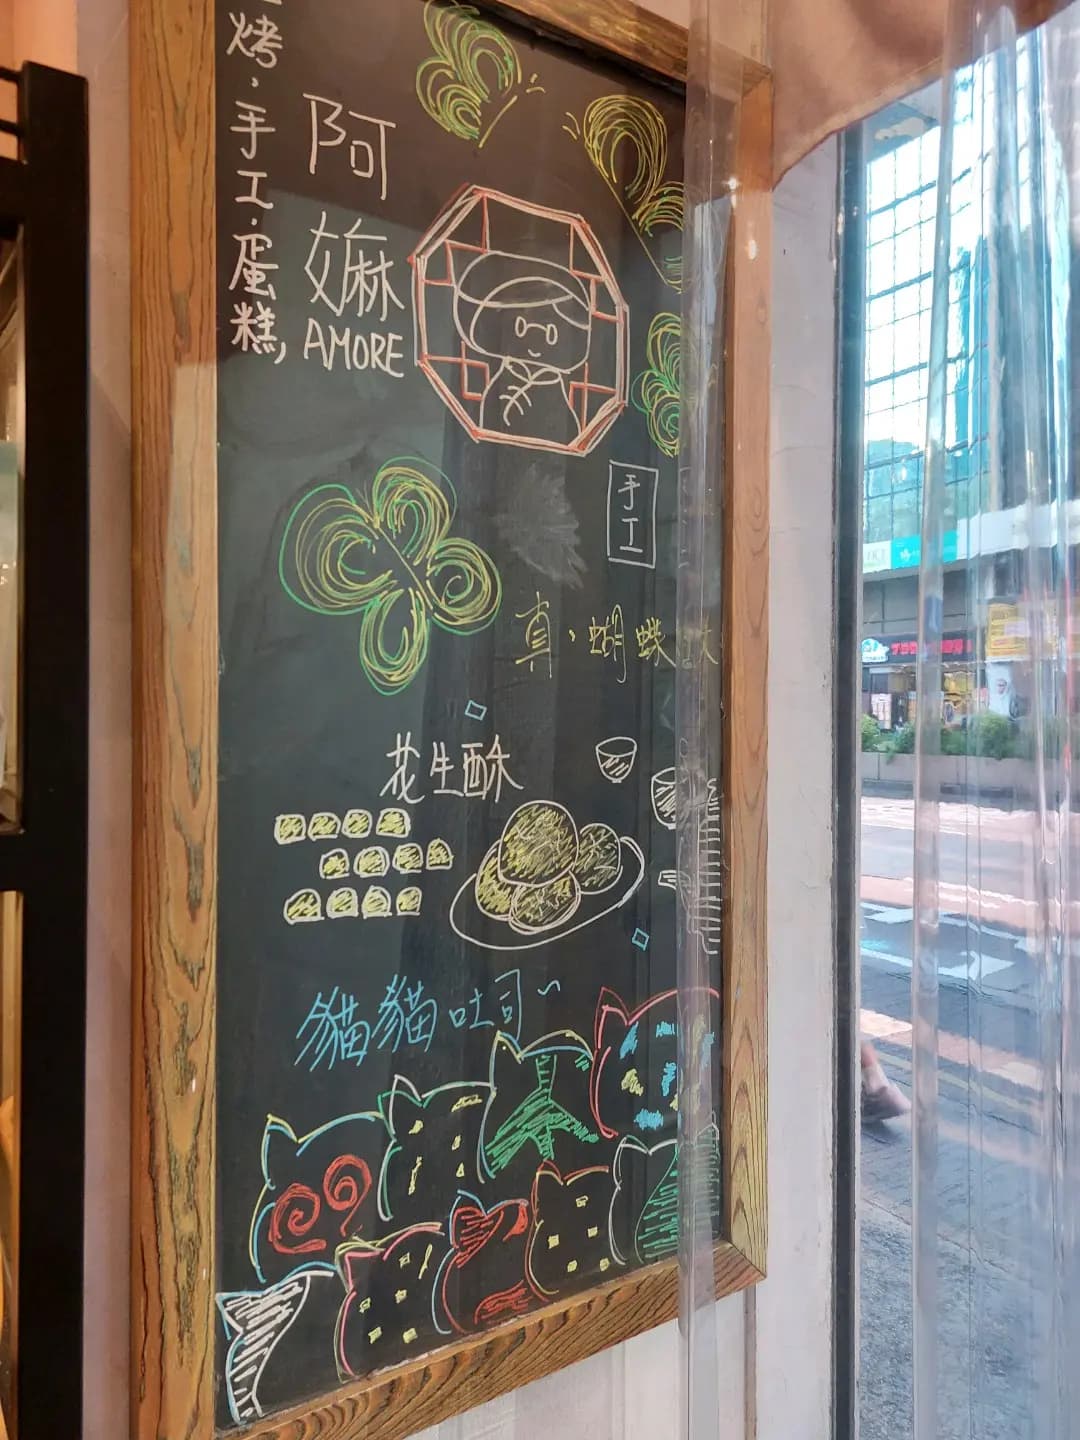 烤·手工·蛋糕,
阿嫲
AMORE
手工
真·蝴蝶酥
花生酥
貓貓吐司~